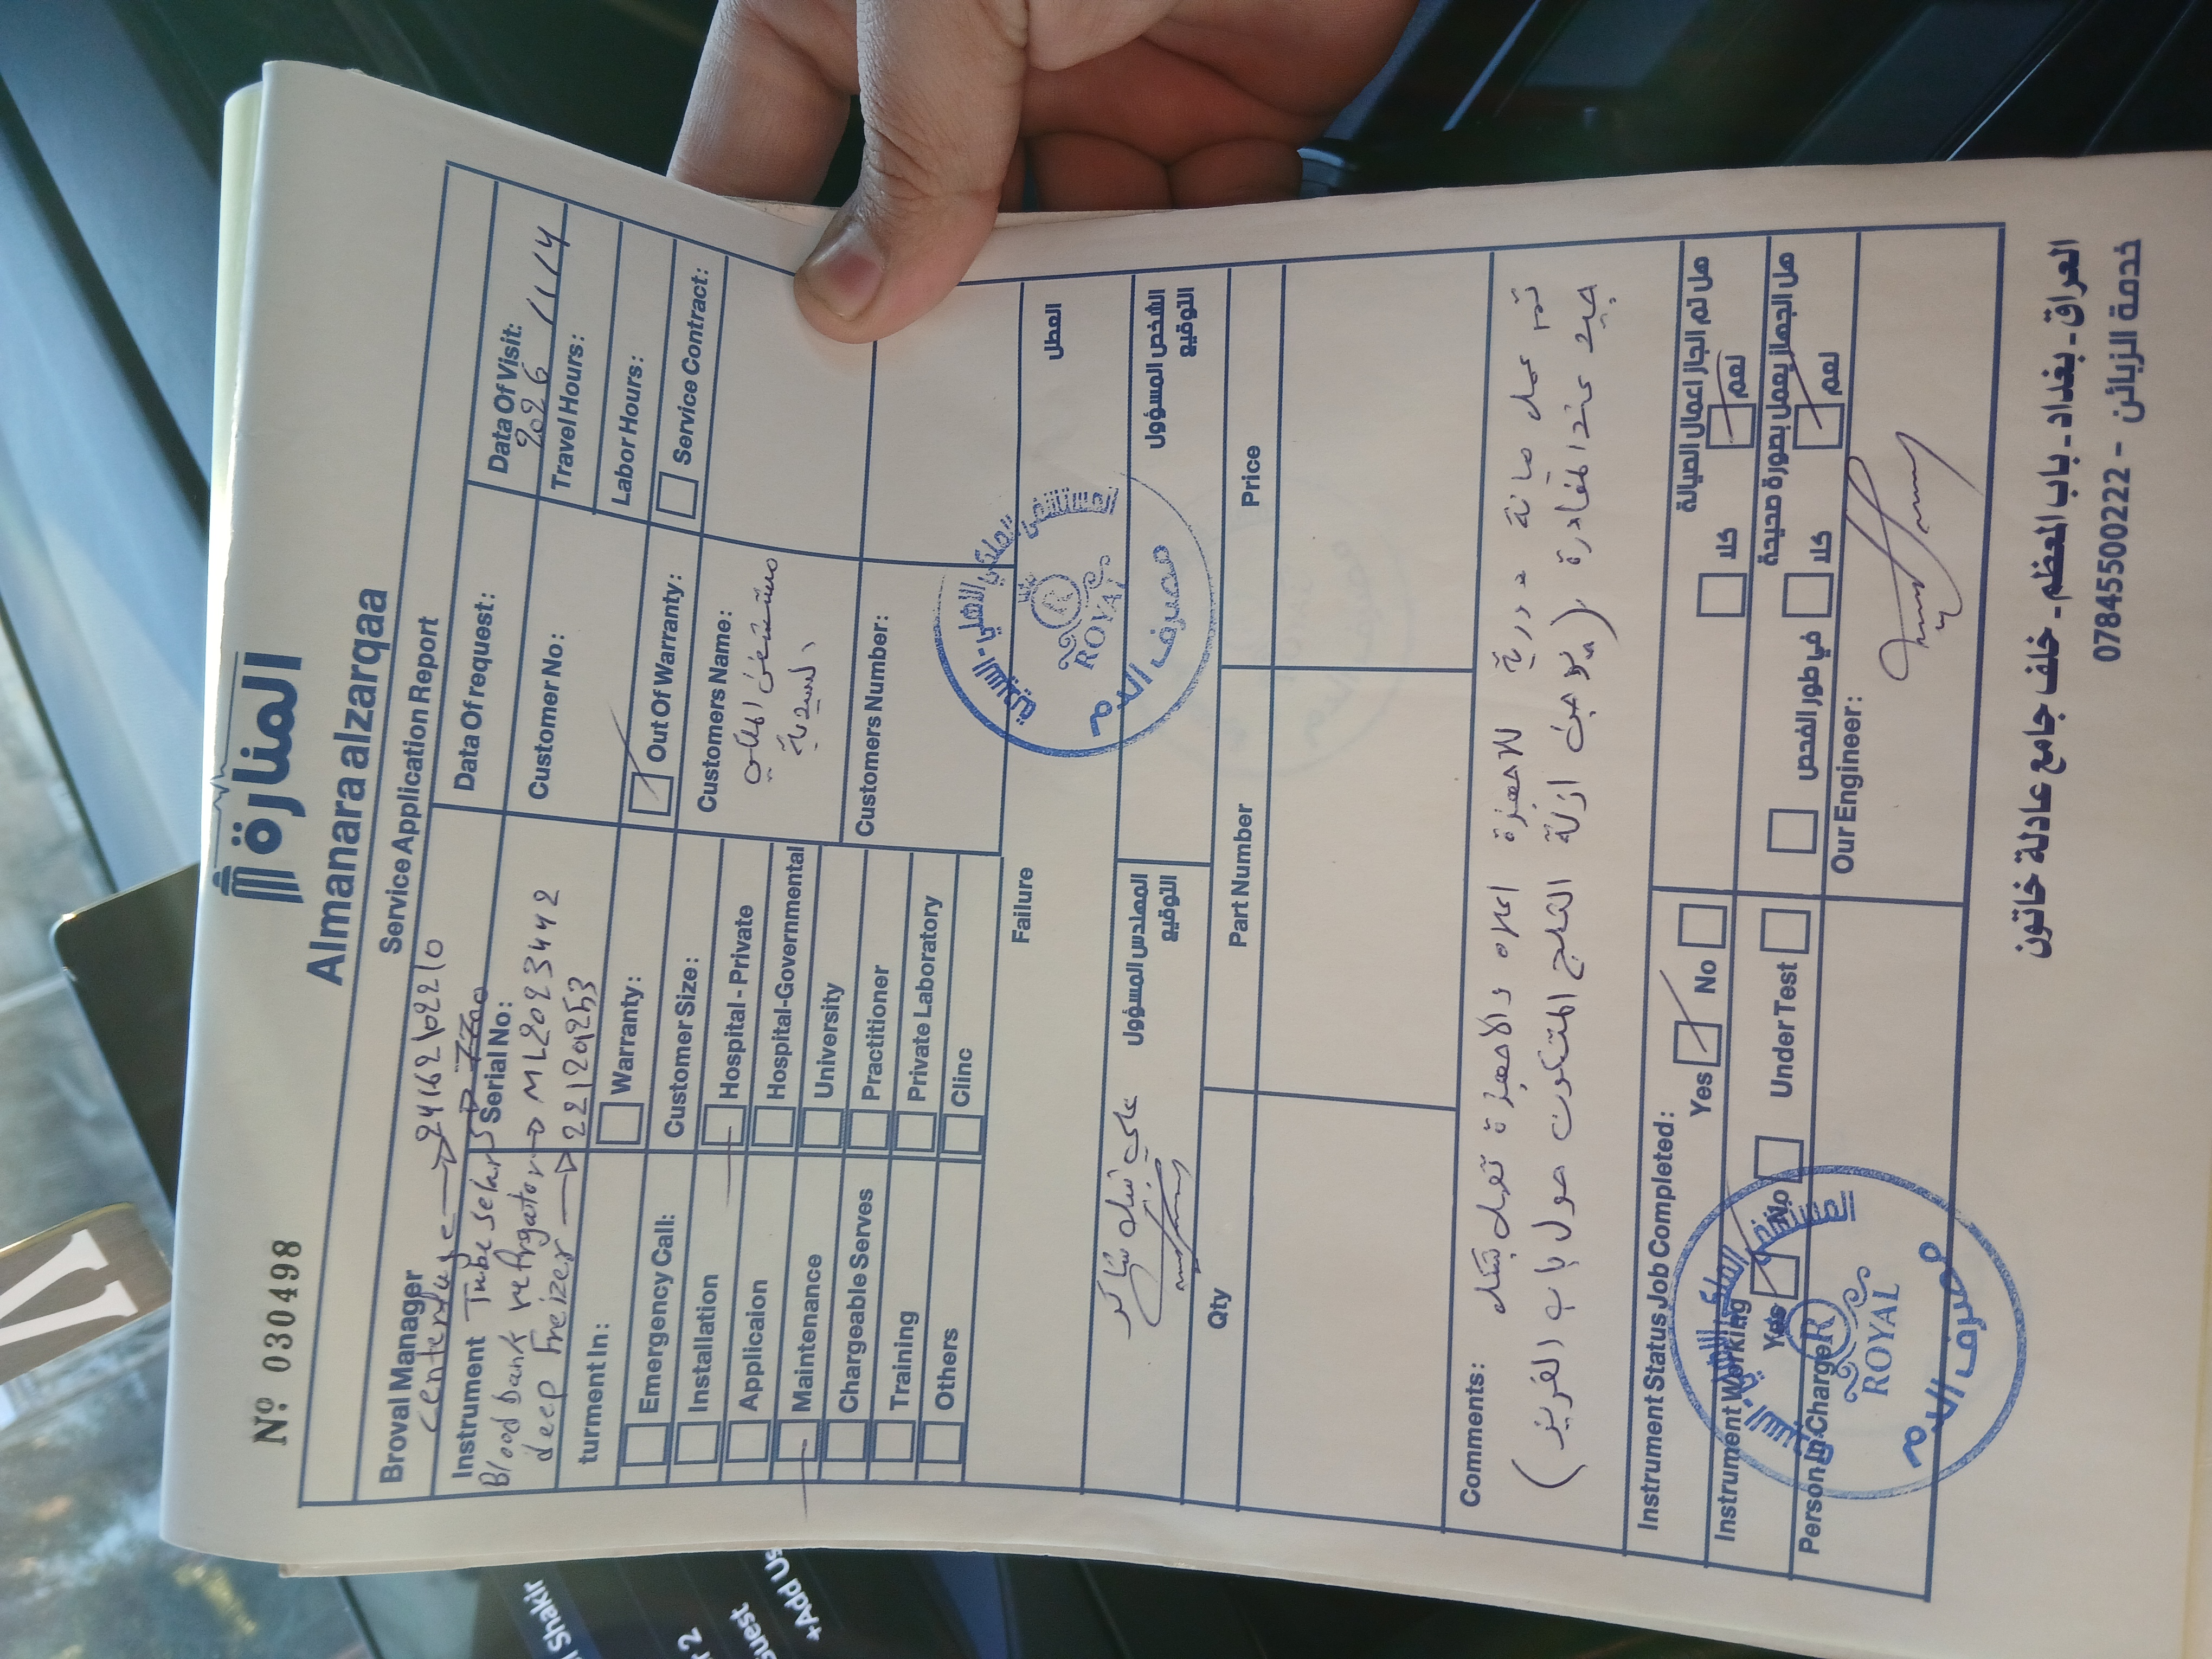 Nº 030498
المنارة
Almanara alzarqaa
Service Application Report
Broval Manager
centerfuge → 24162102210
Data Of request:
Data Of Visit:
2026 / 1 / 14
Instrument Tube selar →
Serial No:
Blood bank refrigator → ML2023442
deep Freizer → 22120253
Customer No:
Travel Hours:
Labor Hours:
turment In:
Warranty:
Out Of Warranty:
Service Contract:
Emergency Call:
Installation
Applicaion
Maintenance
Chargeable Serves
Training
Others
Customer Size:
Hospital - Private
Hospital-Governmental
University
Practitioner
Private Laboratory
Clinc
Customers Name:
مستشفى الملكي
السيدية
Customers Number:
Failure
العطل
المستشفى الملكي الاهلي - السيدية
ROYAL
مصرف الدم
علي نبيل شاكر
المهندس المسؤول
التوقيع
الشخص المسؤول
التوقيع
Qty
Part Number
Price
Comments:
تم عمل صيانة دورية للاجهزة اعلاه والاجهزة تعمل بشكل
جيد عند المغادرة (يلاحظ ازالة الثلج المتكون حول باب الفريزر)
Instrument Status Job Completed:
Yes
No
هل تم انجاز اعمال الصيانة
كلا
نعم
Instrument Working
Yes
No
Under Test
هل الجهاز يعمل بصورة صحيحة
في طور الفحص
كلا
نعم
Person In Charge
Our Engineer:
ROYAL
مصرف الدم
العراق - بغداد - باب المعظم - خلف جامع عادلة خاتون
خدمة الزبائن - 07845500222
Shakir
2
+Add Us
V